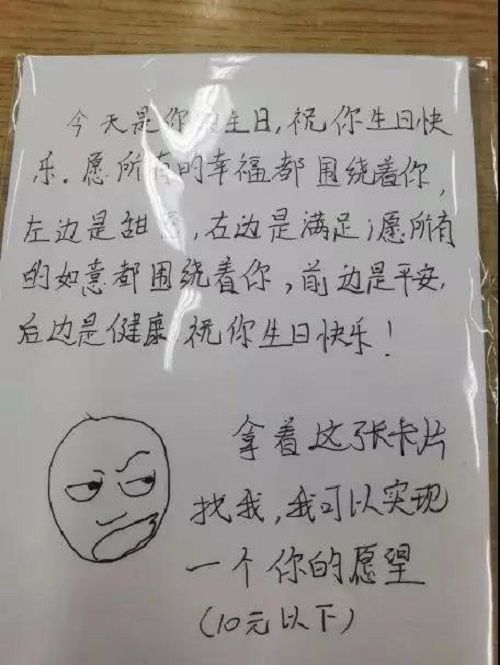 今天是你的生日,祝你生日快
乐.愿所有的幸福都围绕着你,
左边是甜蜜,右边是满足;愿所有
的如意都围绕着你,前边是平安,
后边是健康.祝你生日快乐!
拿着这张卡片
找我,我可以实现
一个你的愿望
(10元以下)